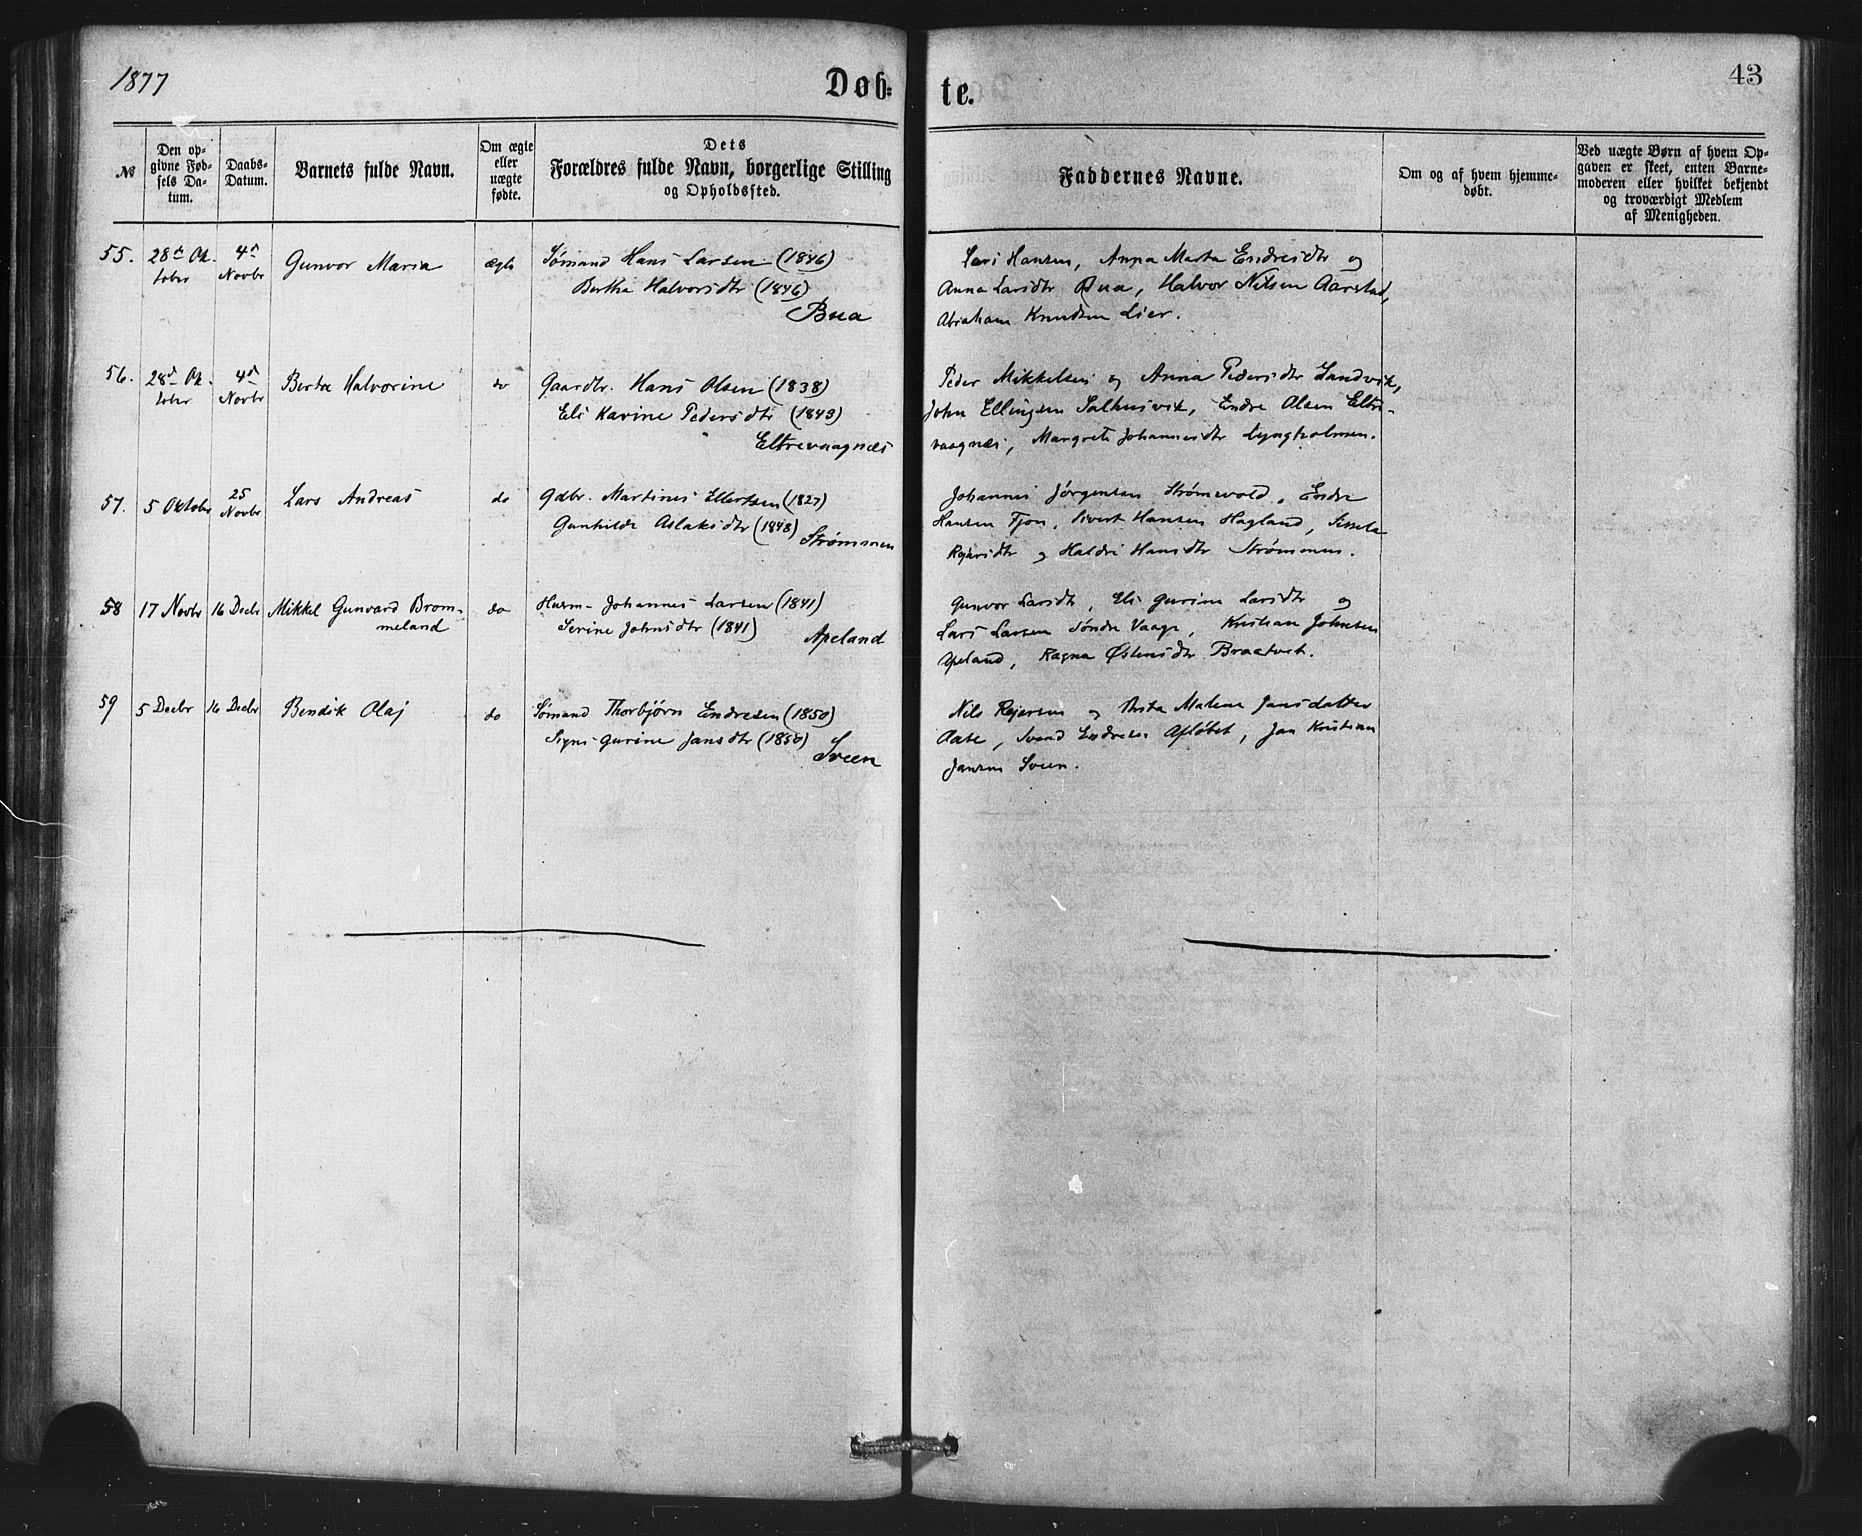 1877
Døb-
te.
43
№
Den op-
givne Fød-
sels Da-
tum.
Daabs-
Datum.
Barnets fulde Navn.
Om ægte
eller
uægte
fødte.
Dets
Forældres fulde Navn, borgerlige Stilling
og Opholdssted.
Faddernes Navne.
Om og af hvem hjemme-
døbt.
Ved uægte Børn af hvem Op-
gaven er skeet, enten Barne-
moderen eller hvilket bekjendt
og troværdigt Medlem
af Menigheden.
55.
28de Ok-
tober
4de
Novbr
Gunvor Maria
ægte
Sømand Hans Larsen (1846)
Bertha Halvorsdtr (1846)
Bua
Lars Hansen, Anna Marta Endresdtr og
Anna Larsdtr Bua, Halvor Nilsen Aarstad,
Abraham Knudsen Lier.
56.
28de Ok-
tober
4de
Novbr
Berta Halvorine
do
Gaardbr. Hans Olsen (1838)
Eli Karine Pedersdtr (1843)
Eltrevaagnæs
Peder Mikkelsen og Anna Pedersdtr Sandvik,
John Ellingsen Salhusvik, Endre Olsen Eltre-
vaagnæs, Margrete Johannesdtr Lyngholmen.
57.
5 Oktober
25
Novbr
Lars Andreas
do
Gdbr. Martines Ellertsen (1827)
Gunhilde Aslaksdtr (1848)
Strømmen
Johannes Jørgensen Strømevold, Endre
Hansen Tjon, Sivert Hansen Hagland, Sissela
Rejersdtr og Haldri Hansdtr Strømmen.
58
17 Novbr
16 Decbr
Mikkel Gunvard Brom-
meland
do
Husm- Johannes Larsen (1841)
Serine Johnsdtr (1841)
Apeland
Gunvor Larsdtr, Eli Gurine Larsdtr og
Lars Larsen Søndre Vaage, Kristian Johnsen
Apeland, Ragna Østensdtr Braatvet.
59
5 Decbr
16 Decbr
Bendik Olaj
do
Sømand Thorbjørn Endresen (1850)
Signe Gurine Jansdtr (1850)
Sveen
Nils Rejersen og Brita Malene Jansdatter
Aase, Svend Endresen Afløbet, Jan Kristian
Jansen Sveen.